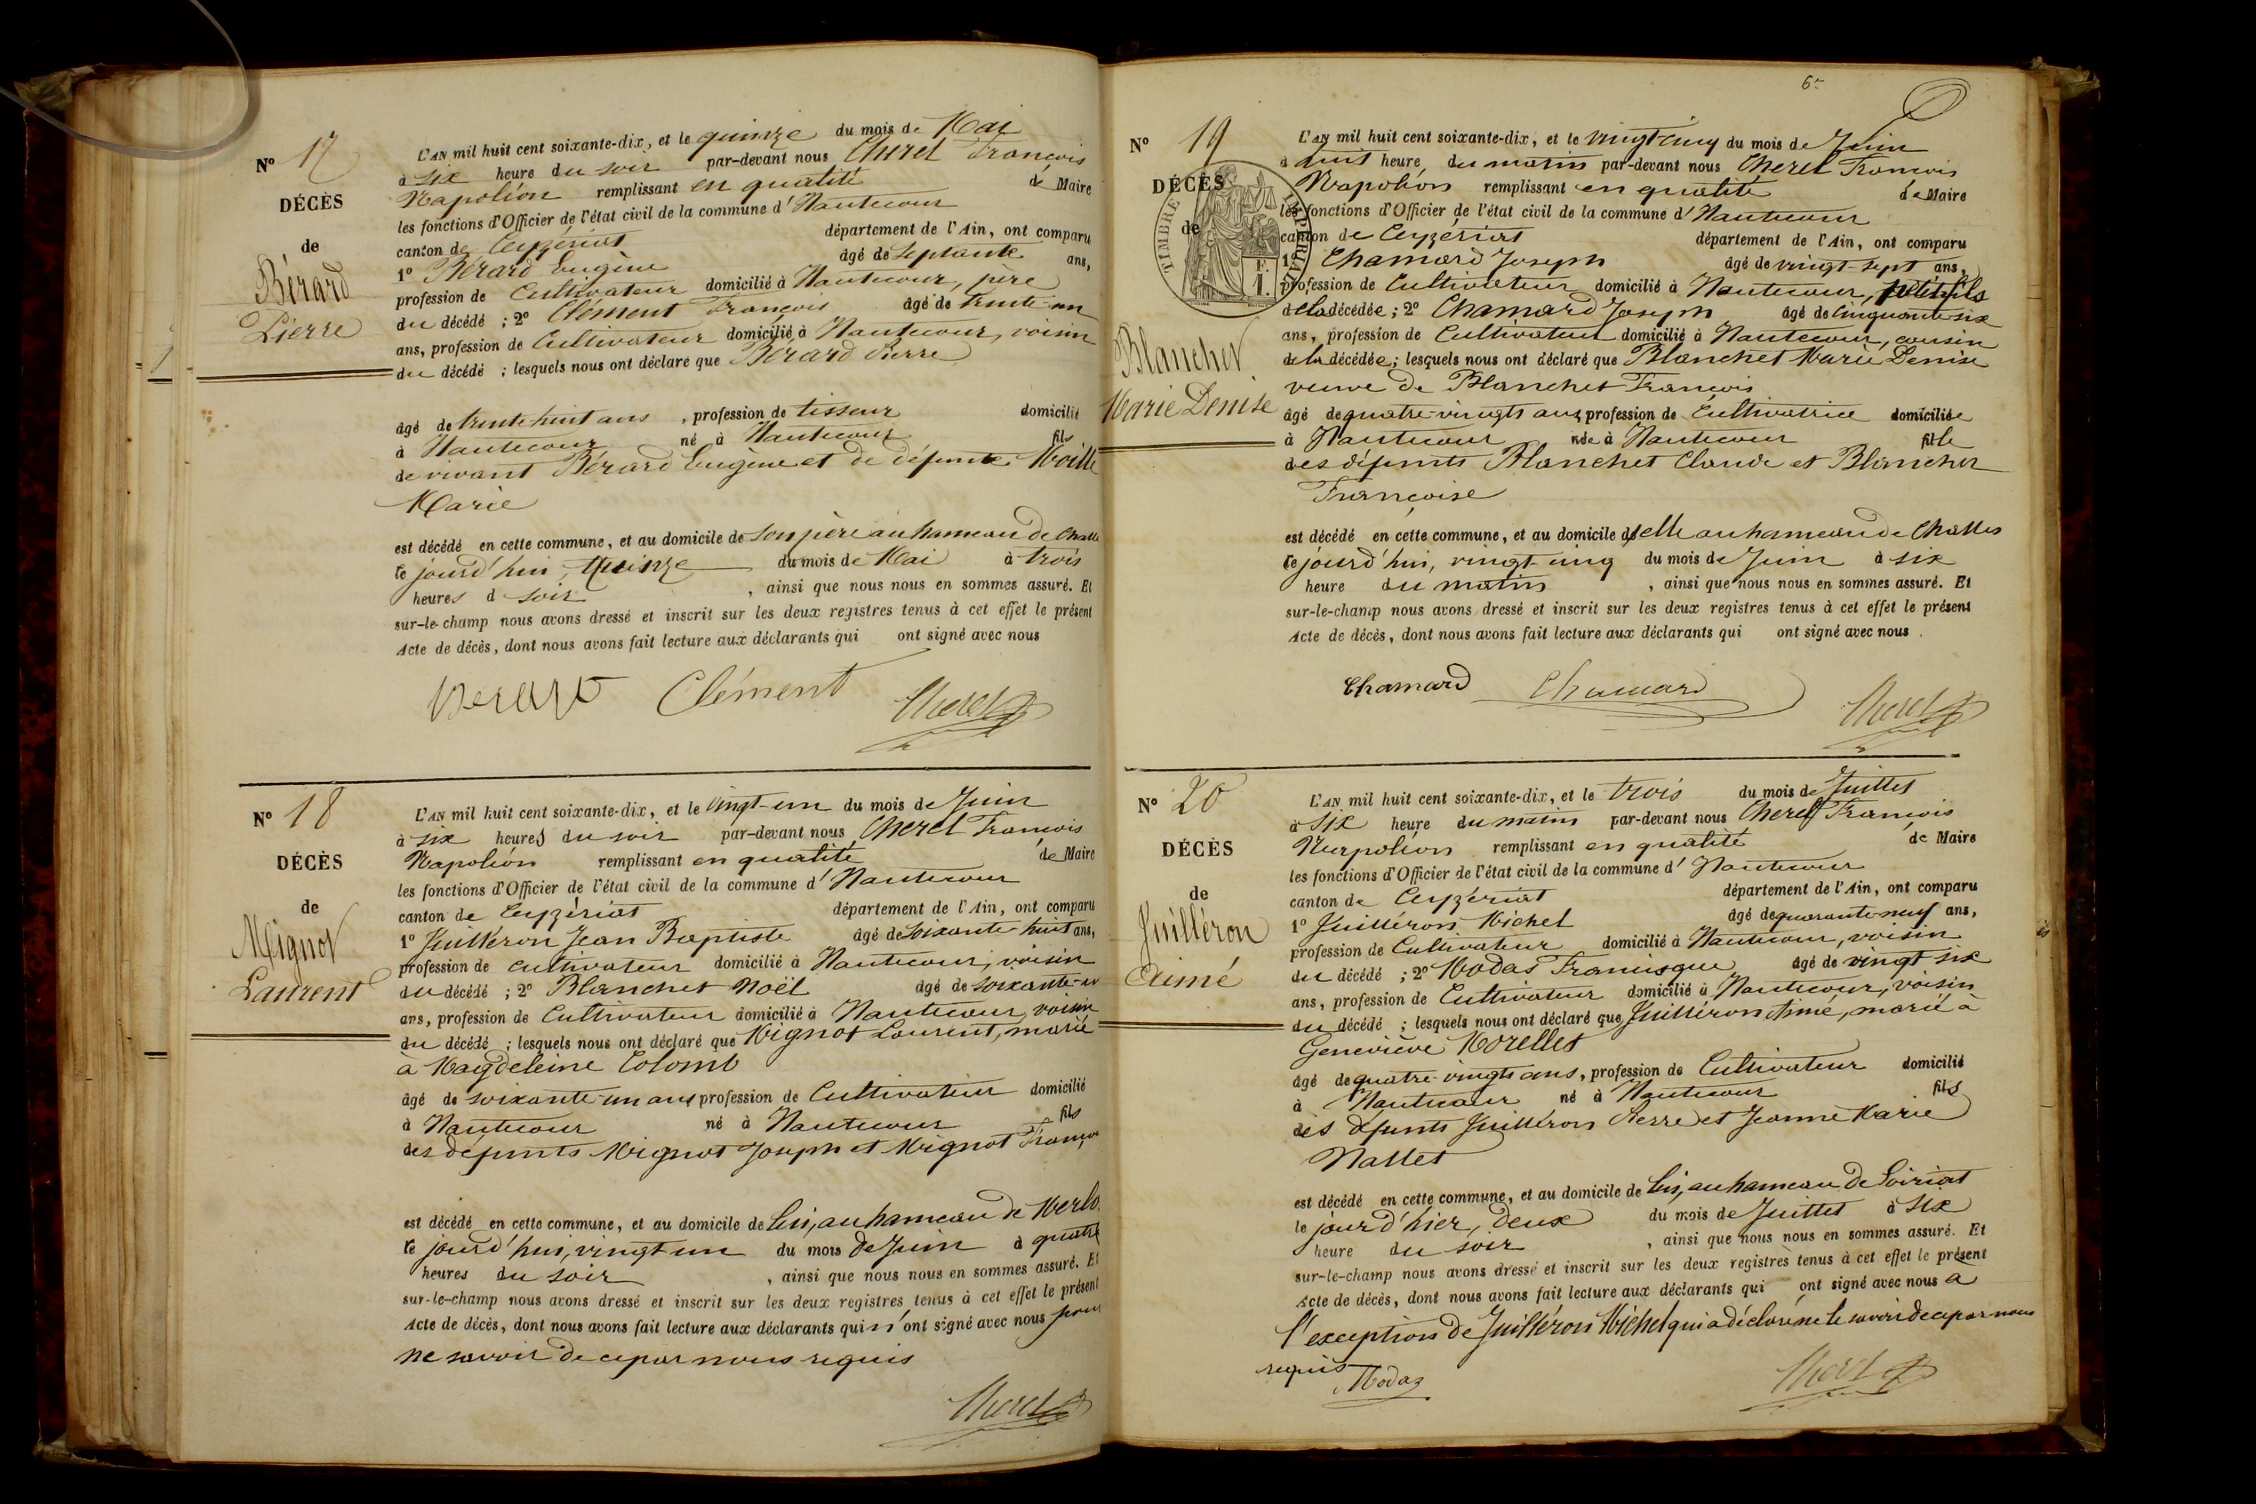 Nº 17
DÉCÈS
de
Bérard
Pierre
L'AN mil huit cent soixante-dix, et le quinze du mois de Mai
à six heure du soir par-devant nous Cherel François
Napoléon remplissant en qualité de Maire
les fonctions d'Officier de l'état civil de la commune d' Hautecour
canton de Ceyzériat département de l'Ain, ont comparu
1º Bérard Eugène âgé de septante ans,
profession de Cultivateur domicilié à Hautecour, père
du décédé ; 2º Clément François âgé de trente-un
ans, profession de Cultivateur domicilié à Hautecour, voisin
du décédé ; lesquels nous ont déclaré que Bérard Pierre
âgé de trente huit ans, profession de tisseur domicilié
à Hautecour né à Hautecour fils
de vivant Bérard Eugène et de défunte
Marie
est décédé en cette commune, et au domicile de son père au hameau de
le jourd'hui, quinze du mois de Mai à trois
heures d soir, ainsi que nous nous en sommes assuré. Et
sur-le-champ nous avons dressé et inscrit sur les deux registres tenus à cet effet le présent
Acte de décès, dont nous avons fait lecture aux déclarants qui ont signé avec nous
Berard Clément Cherel
Nº 18
DÉCÈS
de
Mignot
Laurent
L'AN mil huit cent soixante-dix, et le vingt-un du mois de Juin
à six heures du soir par-devant nous Cherel François
Napoléon remplissant en qualité de Maire
les fonctions d'Officier de l'état civil de la commune d' Hautecour
canton de Ceyzériat département de l'Ain, ont comparu
1º Juilléron Jean Baptiste âgé de soixante huit ans,
profession de cultivateur domicilié à Hautecour, voisin
du décédé ; 2º Blanchet Noël âgé de soixante-
ans, profession de Cultivateur domicilié à Hautecour, voisin
du décédé ; lesquels nous ont déclaré que Mignot Laurent, marié
à Magdeleine Colomb
âgé de soixante-un ans profession de Cultivateur domicilié
à Hautecour né à Hautecour fils
des défunts Mignot Joseph et Mignot
est décédé en cette commune, et au domicile de lui, au hameau de
le jourd'hui, vingt un du mois de Juin à quatre
heures du soir, ainsi que nous nous en sommes assuré. Et
sur-le-champ nous avons dressé et inscrit sur les deux registres tenus à cet effet le présent
Acte de décès, dont nous avons fait lecture aux déclarants qui n'ont signé avec nous pour
ne savoir de ce par nous requis
Cherel
6
Nº 19
DÉCÈS
de
Blanchet
Marie Denise
TIMBRE IMPÉRIAL
F.
1.
L'AN mil huit cent soixante-dix, et le vingt-cinq du mois de Juin
à huit heure du matin par-devant nous Cherel François
Napoléon remplissant en qualité de Maire
les fonctions d'Officier de l'état civil de la commune d' Hautecour
canton de Ceyzériat département de l'Ain, ont comparu
1º Chamard Joseph âgé de vingt-sept ans,
profession de Cultivateur domicilié à Hautecour, petit fils
de la décédée ; 2º Chamard Joseph âgé de cinquante six
ans, profession de Cultivateur domicilié à Hautecour, cousin
de la décédée ; lesquels nous ont déclaré que Blanchet Marie Denise
veuve de Blanchet François
âgé de quatre-vingts ans, profession de Cultivatrice domiciliée
à Hautecour née à Hautecour fille
des défunts Blanchet Claude et Blanchet
Françoise
est décédé en cette commune, et au domicile d'elle au hameau de Challes
le jourd'hui, vingt-cinq du mois de Juin à six
heure du matin, ainsi que nous nous en sommes assuré. Et
sur-le-champ nous avons dressé et inscrit sur les deux registres tenus à cet effet le présent
Acte de décès, dont nous avons fait lecture aux déclarants qui ont signé avec nous.
Chamard Chamard Cherel
Nº 20
DÉCÈS
de
Juilléron
Aimé
L'AN mil huit cent soixante-dix, et le trois du mois de Juillet
à six heure du matin par-devant nous Cherel François
Napoléon remplissant en qualité de Maire
les fonctions d'Officier de l'état civil de la commune d' Hautecour
canton de Ceyzériat département de l'Ain, ont comparu
1º Juilléron Michel âgé de quarante-neuf ans,
profession de Cultivateur domicilié à Hautecour, voisin
du décédé ; 2º Modas Francisque âgé de vingt six
ans, profession de Cultivateur domicilié à Hautecour, voisin
du décédé ; lesquels nous ont déclaré que Juilléron Aimé, marié à
Geneviève Morellet
âgé de quatre-vingts ans, profession de Cultivateur domicilié
à Hautecour né à Hautecour fils
des défunts Juilléron Pierre et Jeanne Marie
Nallet
est décédé en cette commune, et au domicile de lui, au hameau de Soiriat
le jour d'hier, deux du mois de Juillet à six
heure du soir, ainsi que nous nous en sommes assuré. Et
sur-le-champ nous avons dressé et inscrit sur les deux registres tenus à cet effet le présent
Acte de décès, dont nous avons fait lecture aux déclarants qui ont signé avec nous à
l'exception de Juilléron Michel qui a déclaré ne le savoir de ce par nous
requis
Modas Cherel